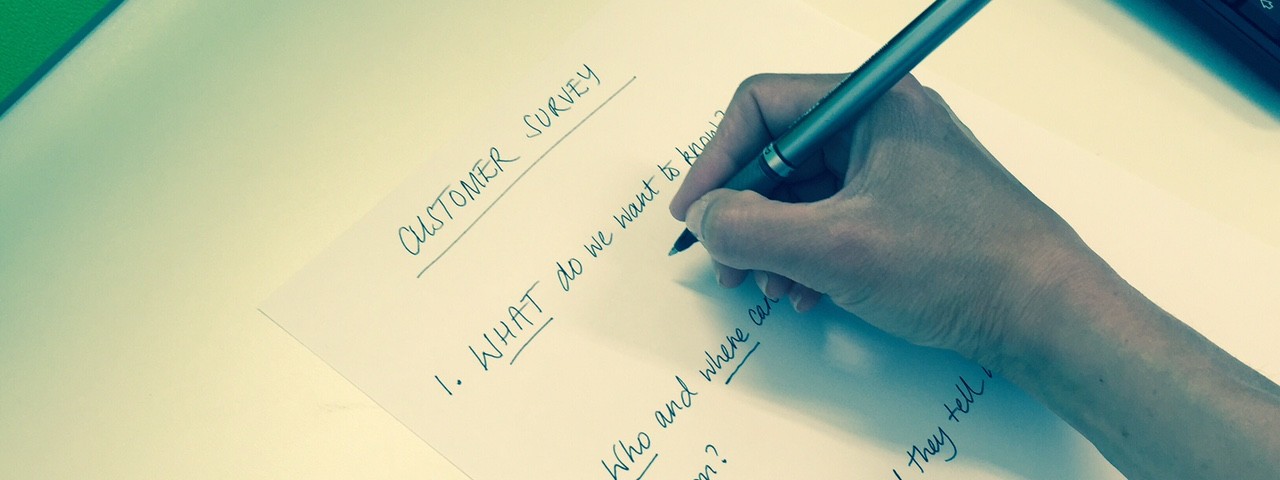 CUSTOMER SURVEY
1. WHAT do we want to know?
Who and where can
they tell